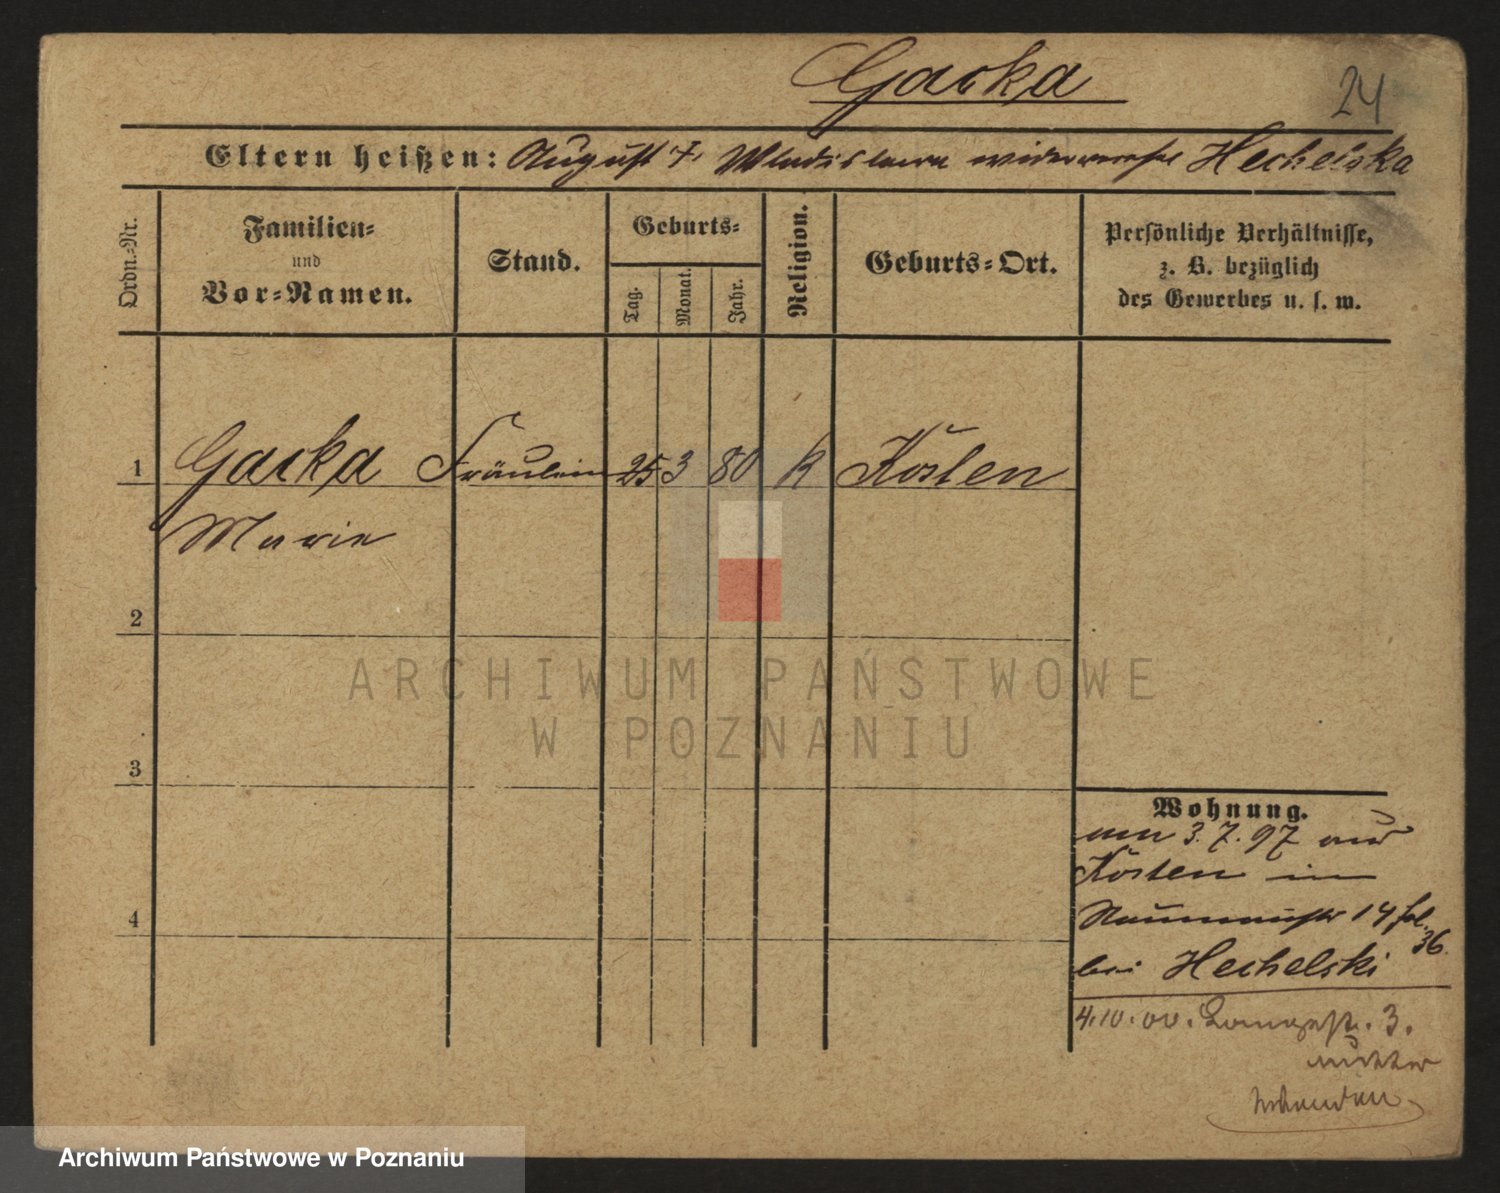 Gacka
24
Eltern heißen: August †, Wladislawa Hechelska
Ordn.-Nr.
Familien-
und
Vor-Namen.
Stand.
Geburts-
Tag.
Monat.
Jahr.
Religion.
Geburts-Ort.
Persönliche Verhältnisse,
z. B. bezüglich
des Gewerbes u. s. w.
1 Gacka Fräulein 25 3 80 k Kosten
Marie
2
ARCHIWUM PAŃSTWOWE
W POZNANIU
3
Wohnung.
am 3.7.97 aus
Kosten in
Naumannstr 14
36.
bei Hechelski
4
4.10.00. 3.
Mutter
Archiwum Państwowe w Poznaniu